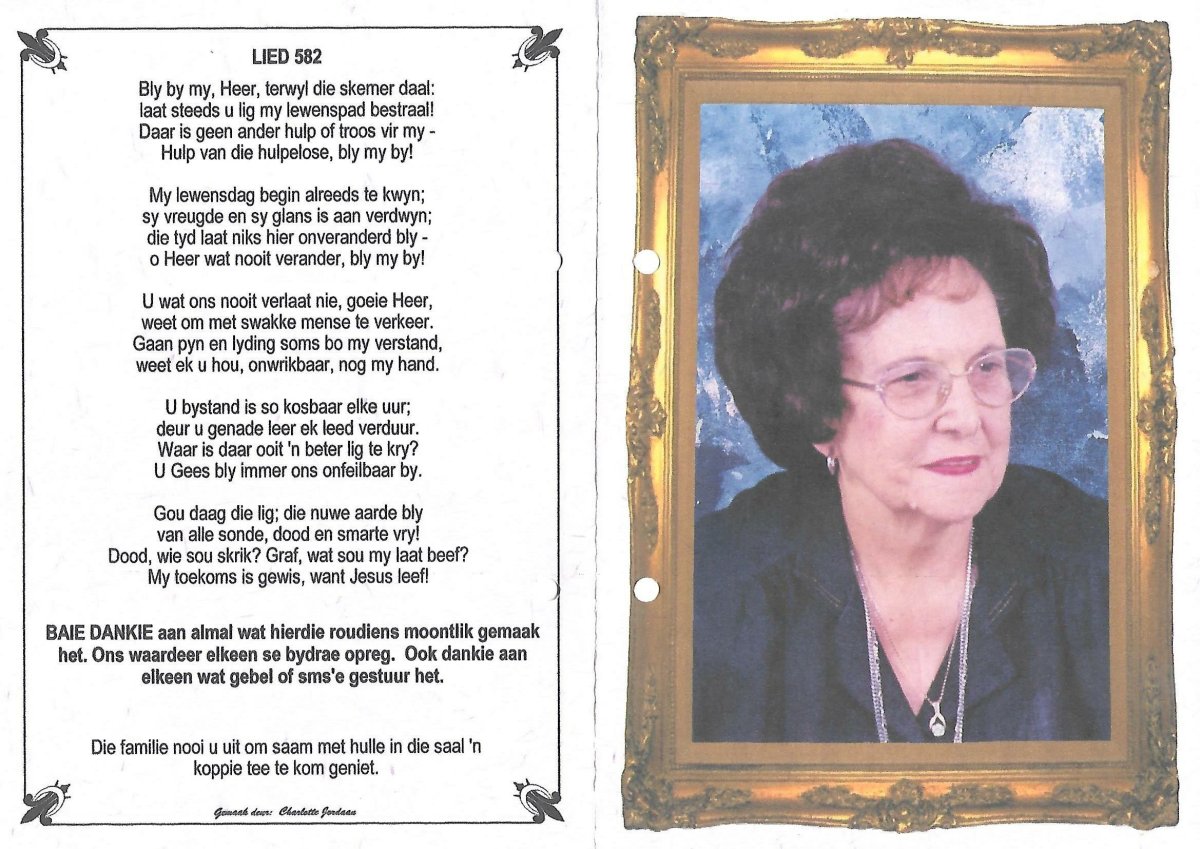 LIED 582
Bly by my, Heer, terwyl die skemer daal:
laat steeds u lig my lewenspad bestraal!
Daar is geen ander hulp of troos vir my -
Hulp van die hulpelose, bly my by!
My lewensdag begin alreeds te kwyn;
sy vreugde en sy glans is aan verdwyn;
die tyd laat niks hier onveranderd bly -
o Heer wat nooit verander, bly my by!
U wat ons nooit verlaat nie, goeie Heer,
weet om met swakke mense te verkeer.
Gaan pyn en lyding soms bo my verstand,
weet ek u hou, onwrikbaar, nog my hand.
U bystand is so kosbaar elke uur;
deur u genade leer ek leed verduur.
Waar is daar ooit 'n beter lig te kry?
U Gees bly immer ons onfeilbaar by.
Gou daag die lig; die nuwe aarde bly
van alle sonde, dood en smarte vry!
Dood, wie sou skrik? Graf, wat sou my laat beef?
My toekoms is gewis, want Jesus leef!
BAIE DANKIE aan almal wat hierdie roudiens moontlik gemaak
het. Ons waardeer elkeen se bydrae opreg. Ook dankie aan
elkeen wat gebel of sms'e gestuur het.
Die familie nooi u uit om saam met hulle in die saal 'n
koppie tee te kom geniet.
Gemaak deur: Charlotte Jordaan